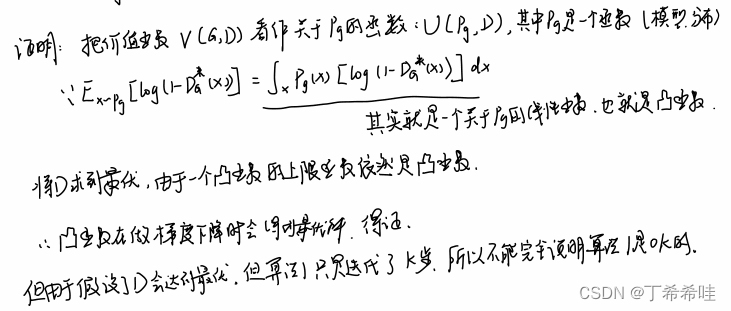 证明: 把价值函数 V(G,D) 看作关于Pg的函数: U(Pg,D), 其中Pg是一个函数 (模型分布)
∵ E_{x~Pg}[log(1-D_G^*(x))] = ∫_x Pg(x) [log(1-D_G^*(x))] dx
其实就是一个关于Pg的线性函数. 也就是凸函数.
将D求到最优, 由于一个凸函数的上限函数依然是凸函数.
∴ 凸函数在做梯度下降时会得到最优解. 得证.
但由于假设了D会达到最优, 但算法1只是迭代了K步, 所以不能完全说明算法1是OK的.
CSDN @丁希希哇